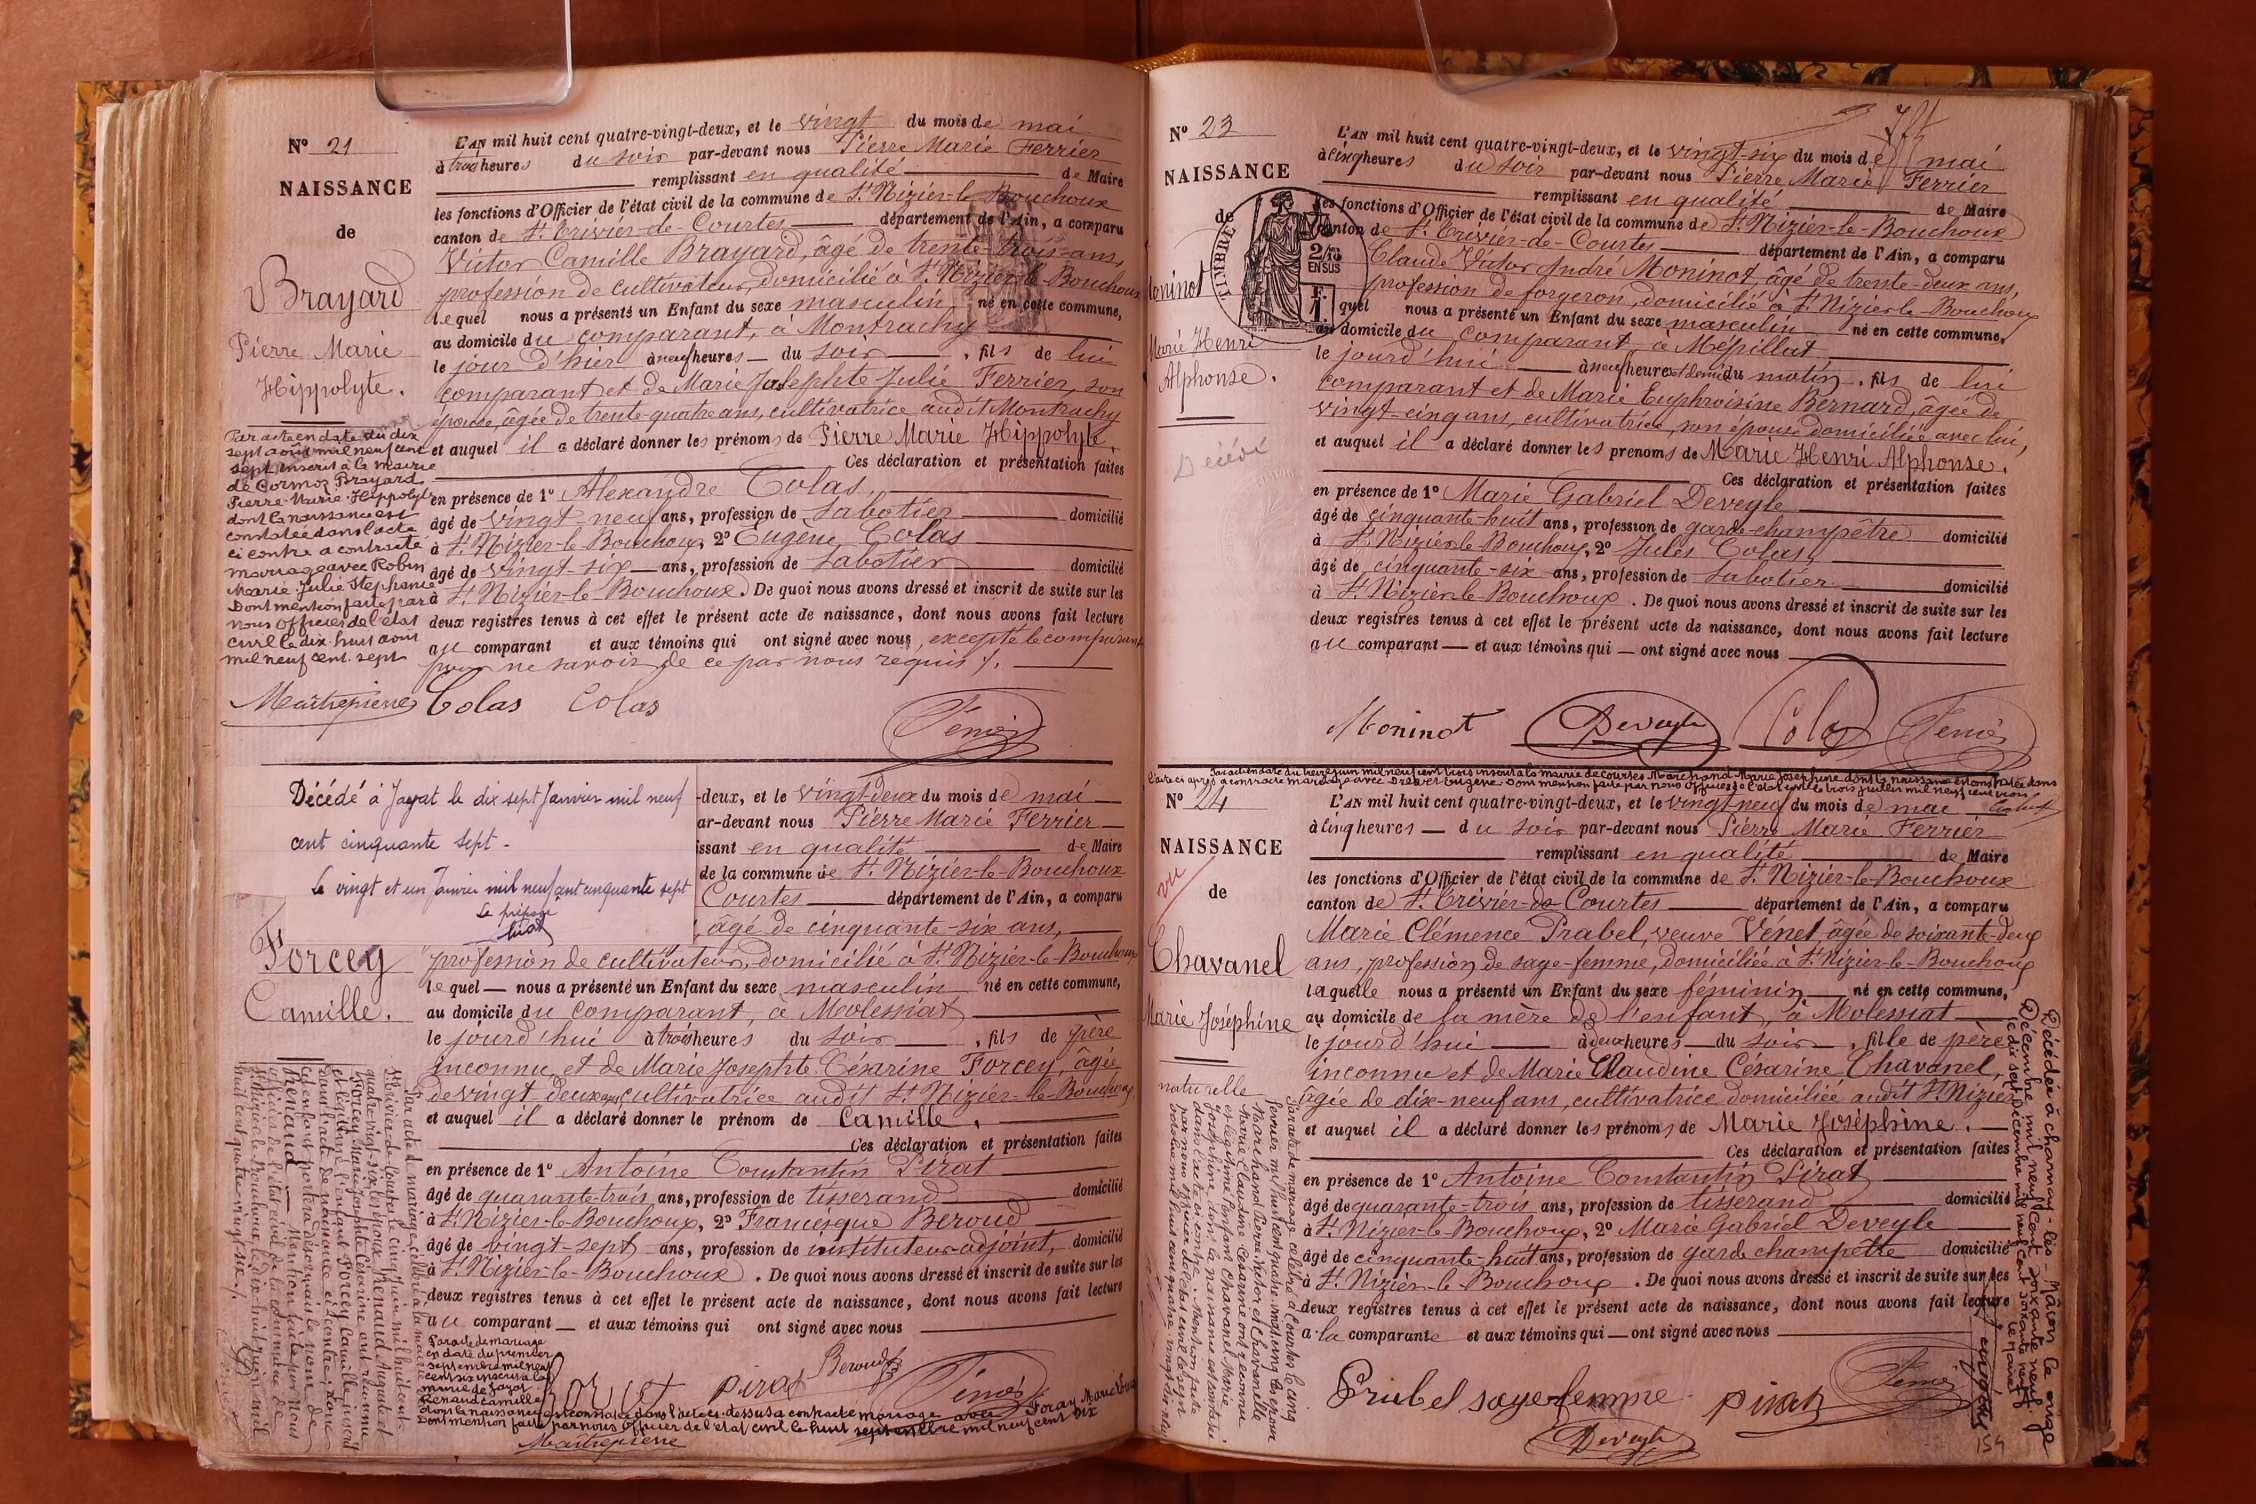 N° 21
NAISSANCE
de
Brayard
Pierre Marie
Hippolyte.
Par acte en date du dix
sept août mil neuf cent
sept inscrit à la mairie
de Cormoz Brayard
Pierre Marie Hippolyte
dont la naissance est
constatée dans l'acte
ci contre a contracté
mariage avec Robin
Marie Julie Stephanie
Dont mention faite par
nous officier de l'état
civil le dix huit août
mil neuf cent sept
L'AN mil huit cent quatre-vingt-deux, et le vingt du mois de mai
à trois heures du soir par-devant nous Pierre Marie Ferrier
remplissant en qualité de Maire
les fonctions d'Officier de l'état civil de la commune de St Nizier-le-Bouchoux
canton de St Trivier-de-Courtes département de l'Ain, a comparu
Victor Camille Brayard, âgé de trente-trois ans,
profession de cultivateur, domicilié à St Nizier-le-Bouchoux
lequel nous a présenté un Enfant du sexe masculin né en cette commune,
au domicile du comparant, à Montrachy
le jour d'hier à neuf heures du soir, fils de lui
comparant et de Marie Josephte Julie Ferrier, son
épouse, âgée de trente-quatre ans, cultivatrice audit Montrachy
et auquel il a déclaré donner les prénoms de Pierre Marie Hippolyte.
Ces déclaration et présentation faites
en présence de 1° Alexandre Colas,
âgé de vingt-neuf ans, profession de sabotier domicilié
à St Nizier-le-Bouchoux, 2° Eugène Colas
âgé de vingt-six ans, profession de sabotier domicilié
à St Nizier-le-Bouchoux. De quoi nous avons dressé et inscrit de suite sur les
deux registres tenus à cet effet le présent acte de naissance, dont nous avons fait lecture
au comparant et aux témoins qui ont signé avec nous, excepté le comparant
pour ne savoir de ce par nous requis ./.
Maitrepierre Colas Colas
Décédé à Jayat le dix sept Janvier mil neuf
cent cinquante sept -
Le vingt et un Janvier mil neuf cent cinquante sept
Le préposé
Forcey
Camille.
-deux, et le vingt-deux du mois de mai
ar-devant nous Pierre Marie Ferrier
issant en qualité de Maire
de la commune de St Nizier-le-Bouchoux
Courtes département de l'Ain, a comparu
, âgé de cinquante-six ans,
profession de cultivateur, domicilié à St Nizier-le-Bouchoux
lequel nous a présenté un Enfant du sexe masculin né en cette commune,
au domicile du comparant, à Molessiat
le jourd'hui à trois heures du soir, fils de père
inconnu et de Marie Josephte Césarine Forcey, âgée
de vingt-deux ans, cultivatrice audit St Nizier-le-Bouchoux
et auquel il a déclaré donner le prénom de Camille.
Ces déclaration et présentation faites
en présence de 1° Antoine Constantin Pirat
âgé de quarante-trois ans, profession de tisserand domicilié
à St Nizier-le-Bouchoux, 2° Francisque Beroud
âgé de vingt-sept ans, profession de instituteur-adjoint, domicilié
à St Nizier-le-Bouchoux. De quoi nous avons dressé et inscrit de suite sur les
deux registres tenus à cet effet le présent acte de naissance, dont nous avons fait lecture
au comparant et aux témoins qui ont signé avec nous
Par acte de mariage célébré à la mairie de
St Trivier-de-Courtes le cinq Juin mil huit cent
quatre-vingt-six les époux Renaud Auguste et
Forcey Marie Josephte Césarine ont reconnu
et légitimé l'enfant Forcey Camille inscrit
dans l'acte de naissance ci-contre, donc
cet enfant portera désormais le nom de
Renaud. Mention faite par nous
officier de l'état civil de la commune de
St Nizier-le-Bouchoux, le dix-huit Juin mil
huit cent quatre-vingt-six ./.
Par acte de mariage
en date du premier
septembre mil neuf
cent dix inscrit à la
mairie de Jayat
Renaud Camille
dont la naissance est constatée dans l'acte ci-dessus a contracté mariage avec Foray Marie
Dont mention faite par nous officier de l'état civil le huit septembre mil neuf cent dix
Maitrepierre
Pirat Beroud
N° 23
NAISSANCE
de
Moninot
Marie Henri
Alphonse.
Décédé
TIMBRE
2/10
EN SUS
L'AN mil huit cent quatre-vingt-deux, et le vingt-six du mois de mai
à cinq heures du soir par-devant nous Pierre Marie Ferrier
remplissant en qualité de Maire
les fonctions d'Officier de l'état civil de la commune de St Nizier-le-Bouchoux
canton de St Trivier-de-Courtes département de l'Ain, a comparu
Claude Victor André Moninot, âgé de trente-deux ans,
profession de forgeron, domicilié à St Nizier-le-Bouchoux
quel nous a présenté un Enfant du sexe masculin né en cette commune,
au domicile du comparant, à Mépillat
le jourd'hui à neuf heures et demi du matin, fils de lui
comparant et de Marie Euphroisine Bernard, âgée de
vingt-cinq ans, cultivatrice, son épouse domiciliée avec lui,
et auquel il a déclaré donner les prenoms de Marie Henri Alphonse.
Ces déclaration et présentation faites
en présence de 1° Marie Gabriel Deveyle
âgé de cinquante-huit ans, profession de garde-champêtre domicilié
à St Nizier-le-Bouchoux, 2° Jules Colas,
âgé de cinquante-six ans, profession de sabotier domicilié
à St Nizier-le-Bouchoux. De quoi nous avons dressé et inscrit de suite sur les
deux registres tenus à cet effet le présent acte de naissance, dont nous avons fait lecture
au comparant et aux témoins qui ont signé avec nous
Moninot Deveyle Colas
Par acte en date du treize juin mil neuf cent trois inscrit à la mairie de Courtes Marchand Marie Josephine dont la naissance est constatée dans
l'acte ci après a contracté mariage avec Eugène. Dont mention faite par nous officier de l'état civil le trois juillet mil neuf cent trois
N° 24
NAISSANCE
vu
de
Chavanel
Marie Joséphine
naturelle
L'AN mil huit cent quatre-vingt-deux, et le vingt-neuf du mois de mai
à cinq heures du soir par-devant nous Pierre Marie Ferrier
remplissant en qualité de Maire
les fonctions d'Officier de l'état civil de la commune de St Nizier-le-Bouchoux
canton de St Trivier-de-Courtes département de l'Ain, a comparu
Marie Clémence Prabel, veuve Vénet, âgée de soixante-deux
ans, profession de sage-femme, domiciliée à St Nizier-le-Bouchoux
laquelle nous a présenté un Enfant du sexe féminin né en cette commune,
au domicile de la mère de l'enfant, à Molessiat
le jourd'hui à deux heures du soir, fille de père
inconnu et de Marie Claudine Césarine Chavanel,
âgée de dix-neuf ans, cultivatrice domiciliée audit St Nizier
et auquel il a déclaré donner les prénoms de Marie Joséphine.
Ces déclaration et présentation faites
en présence de 1° Antoine Constantin Pirat
âgé de quarante-trois ans, profession de tisserand domicilié
à St Nizier-le-Bouchoux, 2° Marie Gabriel Deveyle
âgé de cinquante-huit ans, profession de garde champêtre domicilié
à St Nizier-le-Bouchoux. De quoi nous avons dressé et inscrit de suite sur les
deux registres tenus à cet effet le présent acte de naissance, dont nous avons fait lecture
à la comparante et aux témoins qui ont signé avec nous
Par acte de mariage célébré à Courtes le cinq
février mil huit cent quatre-vingt-six les époux
Marchand Pierre et Chavanelle
Marie Claudine Césarine ont reconnu
et légitimé l'enfant Chavanel Marie
Joséphine, dont la naissance est constatée
dans l'acte ci-contre. Mention faite
par nous officier de l'état civil le sept
Décédée à Charnay-lès-Mâcon le onze
Décembre mil neuf cent soixante neuf
Le dix sept Décembre mil neuf cent soixante neuf
Le Maire
Prabel sage-femme Pirat
Deveyle
154